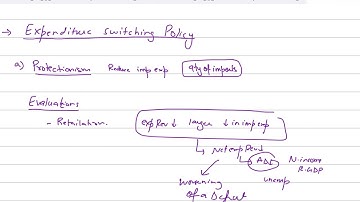 → Expenditure switching Policy
a) Protectionism Reduce imp exp qty of imports
Evaluations
- Retaliation. exp Rev ↓ larger ↓ in imp exp
↳ Net exp Rev ↓
↳ AD↓ N.income
R.GDP
worsening unemp
of a Deficit